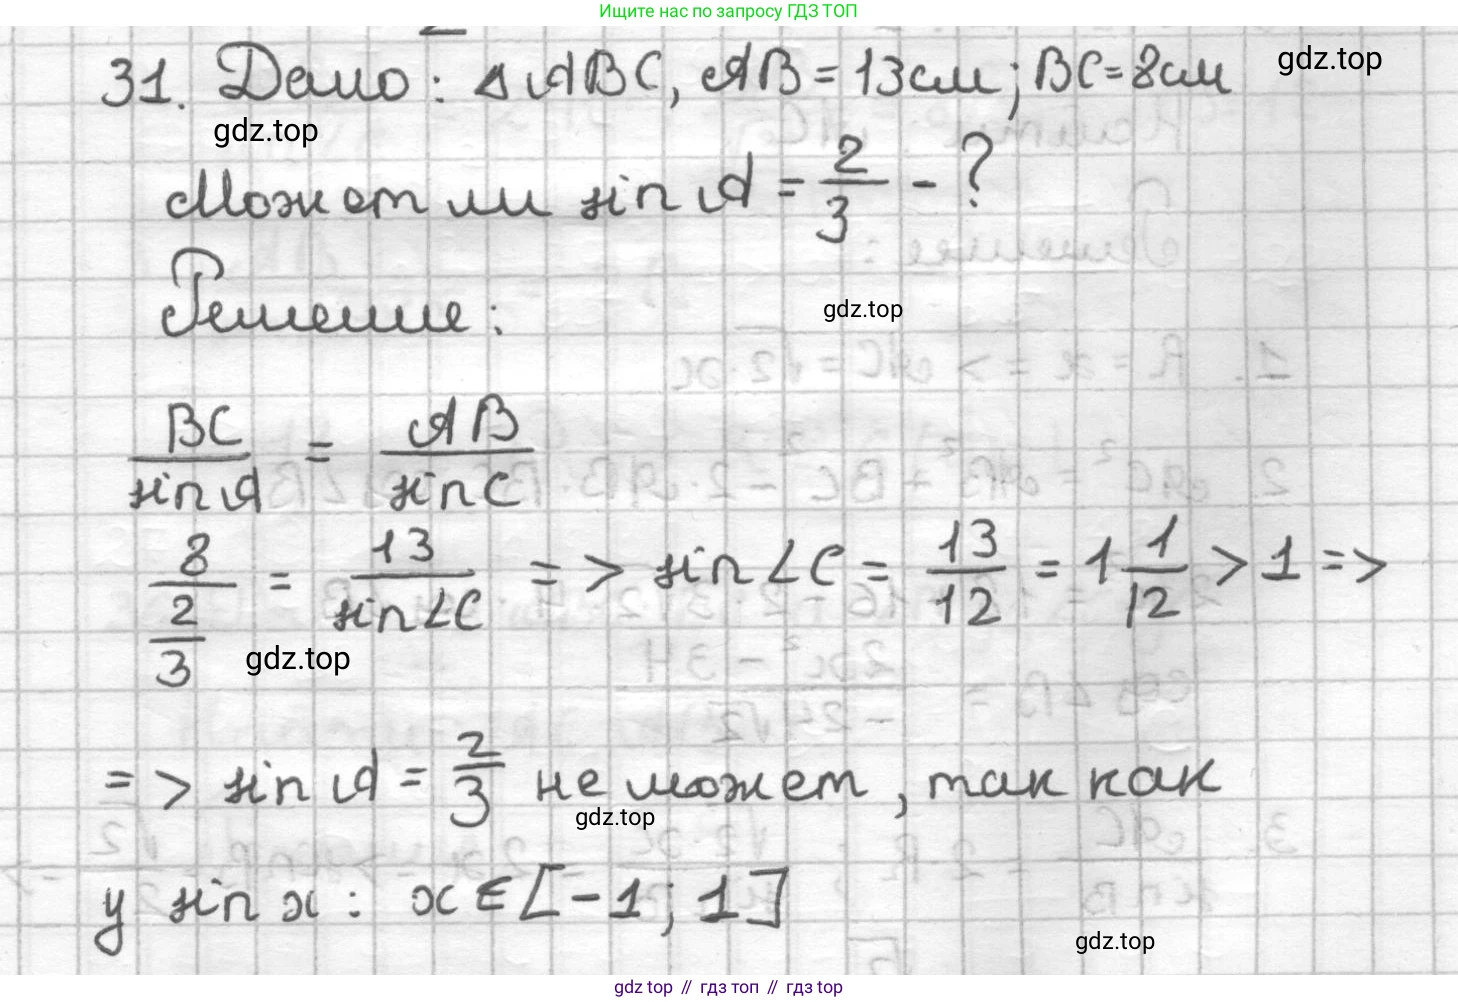 Ищите нас по запросу ГДЗ ТОП
31. Дано: △ABC, AB = 13 см; BC = 8 см
gdz.top
gdz.top
Может ли sin A = 2/3 - ?
Решение:
gdz.top
BC/sin A = AB/sin C
8/(2/3) = 13/sin∠C => sin∠C = 13/12 = 1 1/12 > 1 =>
gdz.top
=> sin A = 2/3 не может, так как
gdz.top
у sin x: x ∈ [-1; 1]
gdz.top
gdz.top // гдз топ // гдз top